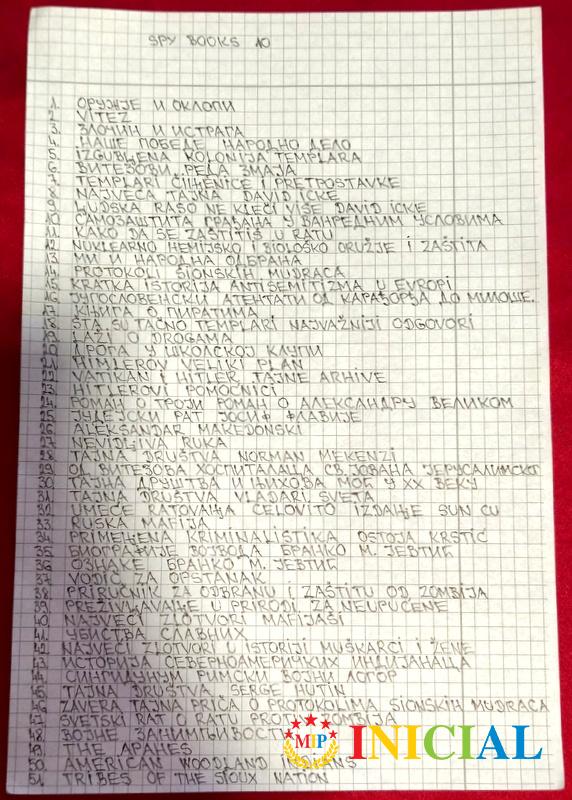 SPY BOOKS 10
1. ОРУЖЈЕ И ОКЛОПИ
2. VITEZ
3. ЗЛОЧИН И ИСТРАГА
4. НАШЕ ПОБЕДЕ НАРОДНО ДЕЛО
5. IZGUBLJENA KOLONIJA TEMPLARA
6. ВИТЕЗОВИ РЕДА ЗМАЈА
7. TEMPLARI ČINJENICE I PRETPOSTAVKE
8. NAJVEĆA TAJNA DAVID ICKE
9. LJUDSKA RASO NE KLEČI VIŠE DAVID ICKE
10. САМОЗАШТИТА ГРАЂАНА У ВАНРЕДНИМ УСЛОВИМА
11. KAKO DA SE ZAŠTITIŠ U RATU
12. NUKLEARNO HEMIJSKO I BIOLOŠKO ORUŽJE I ZAŠTITA
13. МИ И НАРОДНА ОДБРАНА
14. PROTOKOLI SIONSKIH MUDRACA
15. KRATKA ISTORIJA ANTISEMITIZMA U EVROPI
16. ЈУГОСЛОВЕНСКИ АТЕНТАТИ ОД КАРАЂОРЂА ДО МИЛОШЕ.
17. КЊИГА О ПИРАТИМА
18. ŠTA SU TAČNO TEMPLARI NAJVAŽNIJI ODGOVORI
19. LAŽI O DROGAMA
20. ДРОГА У ШКОЛСКОЈ КЛУПИ
21. HIMLEROV VELIKI PLAN
22. VATIKAN I HITLER TAJNE ARHIVE
23. HITLEROVI POMOĆNICI
24. РОМАН О ТРОЈИ РОМАН О АЛЕКСАНДРУ ВЕЛИКОМ
25. ЈУДЕЈСКИ РАТ ЈОСИФ ФЛАВИЈЕ
26. ALEKSANDAR MAKEDONSKI
27. NEVIDLJIVA RUKA
28. TAJNA DRUŠTVA NORMAN MEKENZI
29. ОД ВИТЕЗОВА ХОСПИТАЛАЦА СВ. ЈОВАНА ЈЕРУСАЛИМСКОГ
30. ТАЈНА ДРУШТВА И ЊИХОВА МОЋ У XX ВЕКУ
31. TAJNA DRUŠTVA VLADARI SVETA
32. UMEĆE RATOVANJA CELOVITO IZDANJE SUN CU
33. RUSKA MAFIJA
34. PRIMENJENA KRIMINALISTIKA OSTOJA KRSTIĆ
35. БИОГРАФИЈЕ ВОЈВОДА БРАНКО М. ЈЕВТИЋ
36. ОЗНАКЕ БРАНКО М. ЈЕВТИЋ
37. VODIČ ZA OPSTANAK
38. PRIRUČNIK ZA ODBRANU I ZAŠTITU OD ZOMBIJA
39. PREŽIVLJAVANJE U PRIRODI ZA NEUPUĆENE
40. NAJVEĆI ZLOTVORI MAFIJAŠI
41. УБИСТВА СЛАВНИХ
42. NAJVEĆI ZLOTVORI U ISTORIJI MUŠKARCI I ŽENE
43. ИСТОРИЈА СЕВЕРНОАМЕРИЧКИХ ИНДИЈАНАЦА
44. СИНГИДУНУМ РИМСКИ ВОЈНИ ЛОГОР
45. TAJNA DRUŠTVA SERGE HUTIN
46. ZAVERA TAJNA PRIČA O PROTOKOLIMA SIONSKIH MUDRACA
47. SVETSKI RAT Z RATU PROTIV ZOMBIJA
48. ВОЈНЕ ЗАНИМЉИВОСТИ
49. THE APAHES
50. AMERICAN WOODLAND INDIANS
51. TRIBES OF THE SIOUX NATION
MIP INICIAL